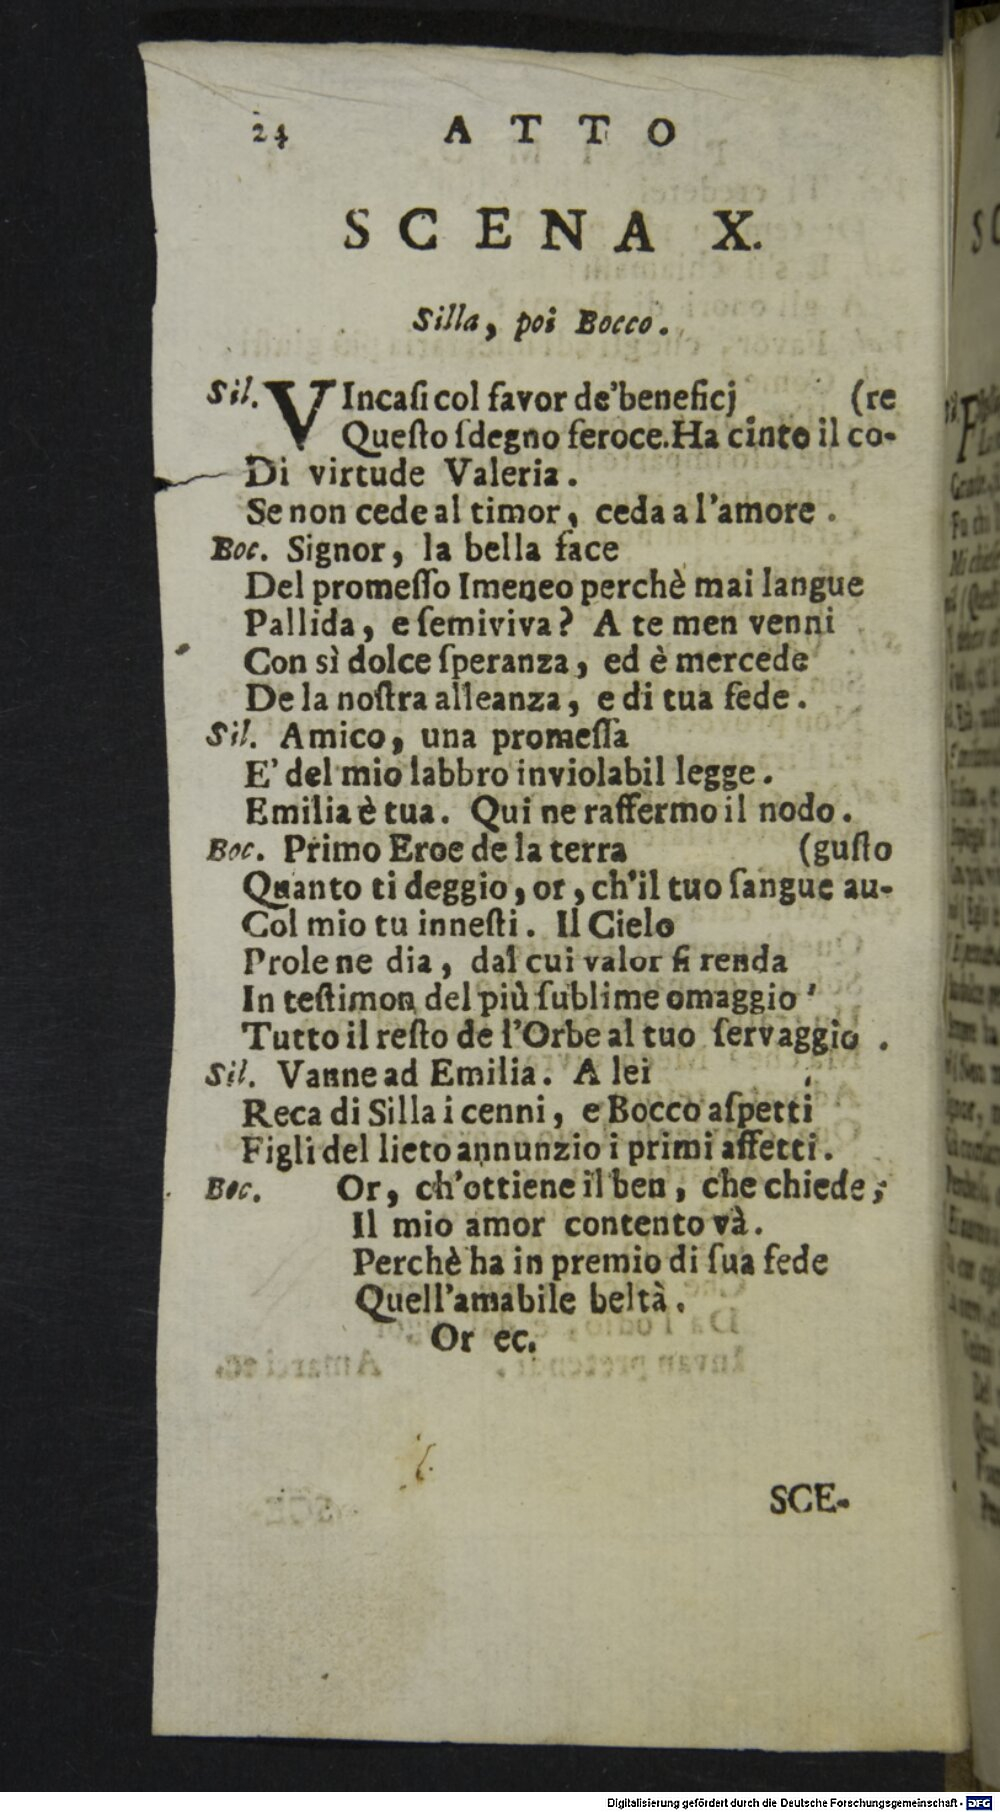 24 ATTO
SCENA X.
Silla, poi Bocco.
Sil. VIncaſi col favor de'beneficj (re
Queſto ſdegno feroce. Ha cinto il co-
Di virtude Valeria.
Se non cede al timor, ceda a l'amore.
Boc. Signor, la bella face
Del promeſſo Imeneo perchè mai langue
Pallida, e ſemiviva? A te men venni
Con sì dolce ſperanza, ed è mercede
De la noſtra alleanza, e di tua fede.
Sil. Amico, una promeſſa
E' del mio labbro inviolabil legge.
Emilia è tua. Qui ne raffermo il nodo.
Boc. Primo Eroe de la terra (guſto
Quanto ti deggio, or, ch'il tuo ſangue au-
Col mio tu inneſti. Il Cielo
Prole ne dia, dal cui valor ſi renda
In teſtimon del più ſublime omaggio
Tutto il reſto de l'Orbe al tuo ſervaggio.
Sil. Vanne ad Emilia. A lei
Reca di Silla i cenni, e Bocco aſpetti
Figli del lieto annunzio i primi affetti.
Boc. Or, ch'ottiene il ben, che chiede;
Il mio amor contento và.
Perchè ha in premio di ſua fede
Quell'amabile beltà.
Or ec.
SCE-
Digitalisierung gefördert durch die Deutsche Forschungsgemeinschaft - DFG